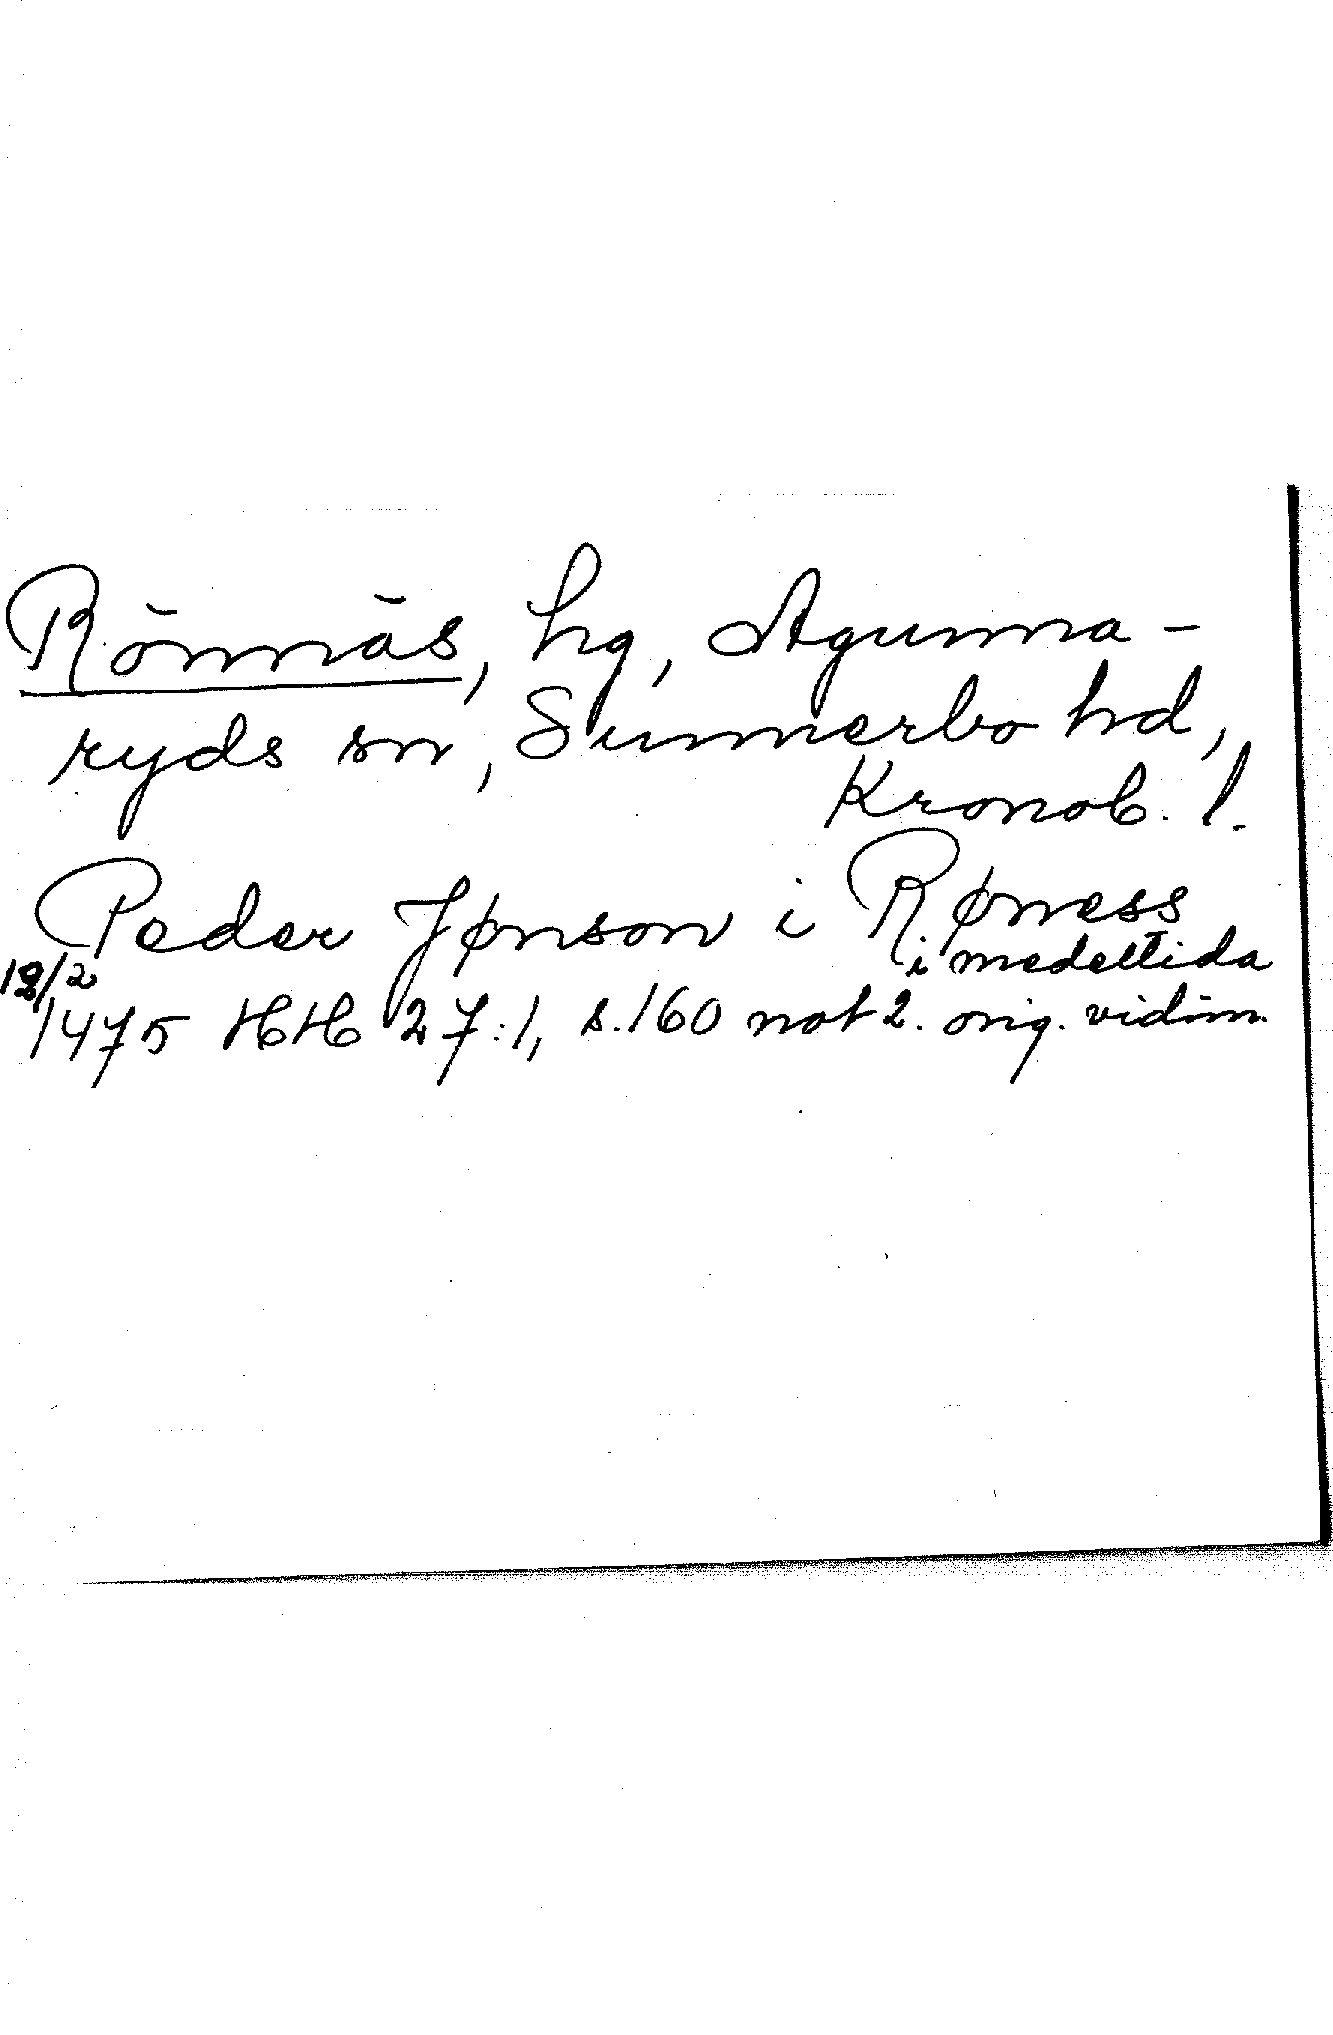 Rönnäs, hg, Agunna-
ryds sn, Sunnerbo hd,
Kronob. l.
Peder Jønson i Røness
i medeltida
12/2
1475 HH 27:1, s.160 not 2. orig. vidim.